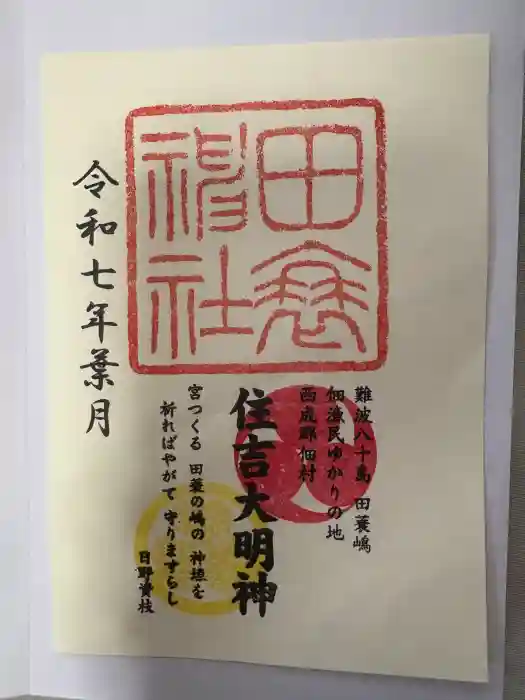 田蓑
神社
難波八十島 田蓑嶋
佃漁民ゆかりの地
西成郡佃村
住吉大明神
宮つくる 田蓑の嶋の 神垣を
祈ればやがて 守りますらし
日野資枝
令和七年葉月